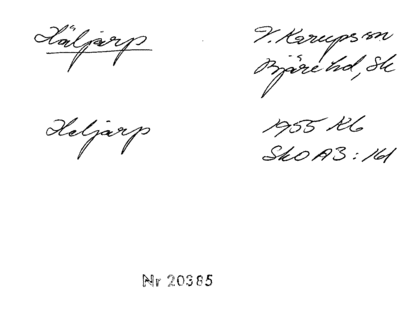 Häljarp
V. Karups sn
Bjäre hd, Sk
Heljarp
1955 Kb
SkO A3: 161
Nr 20385